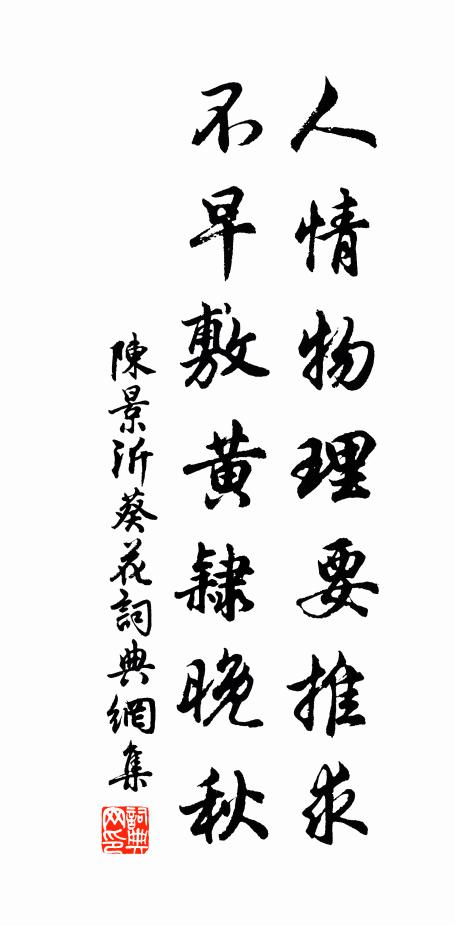 人情物理要推求
不早敷黄隸晚秋
陳景沂葵花詞典網集
詞典网印